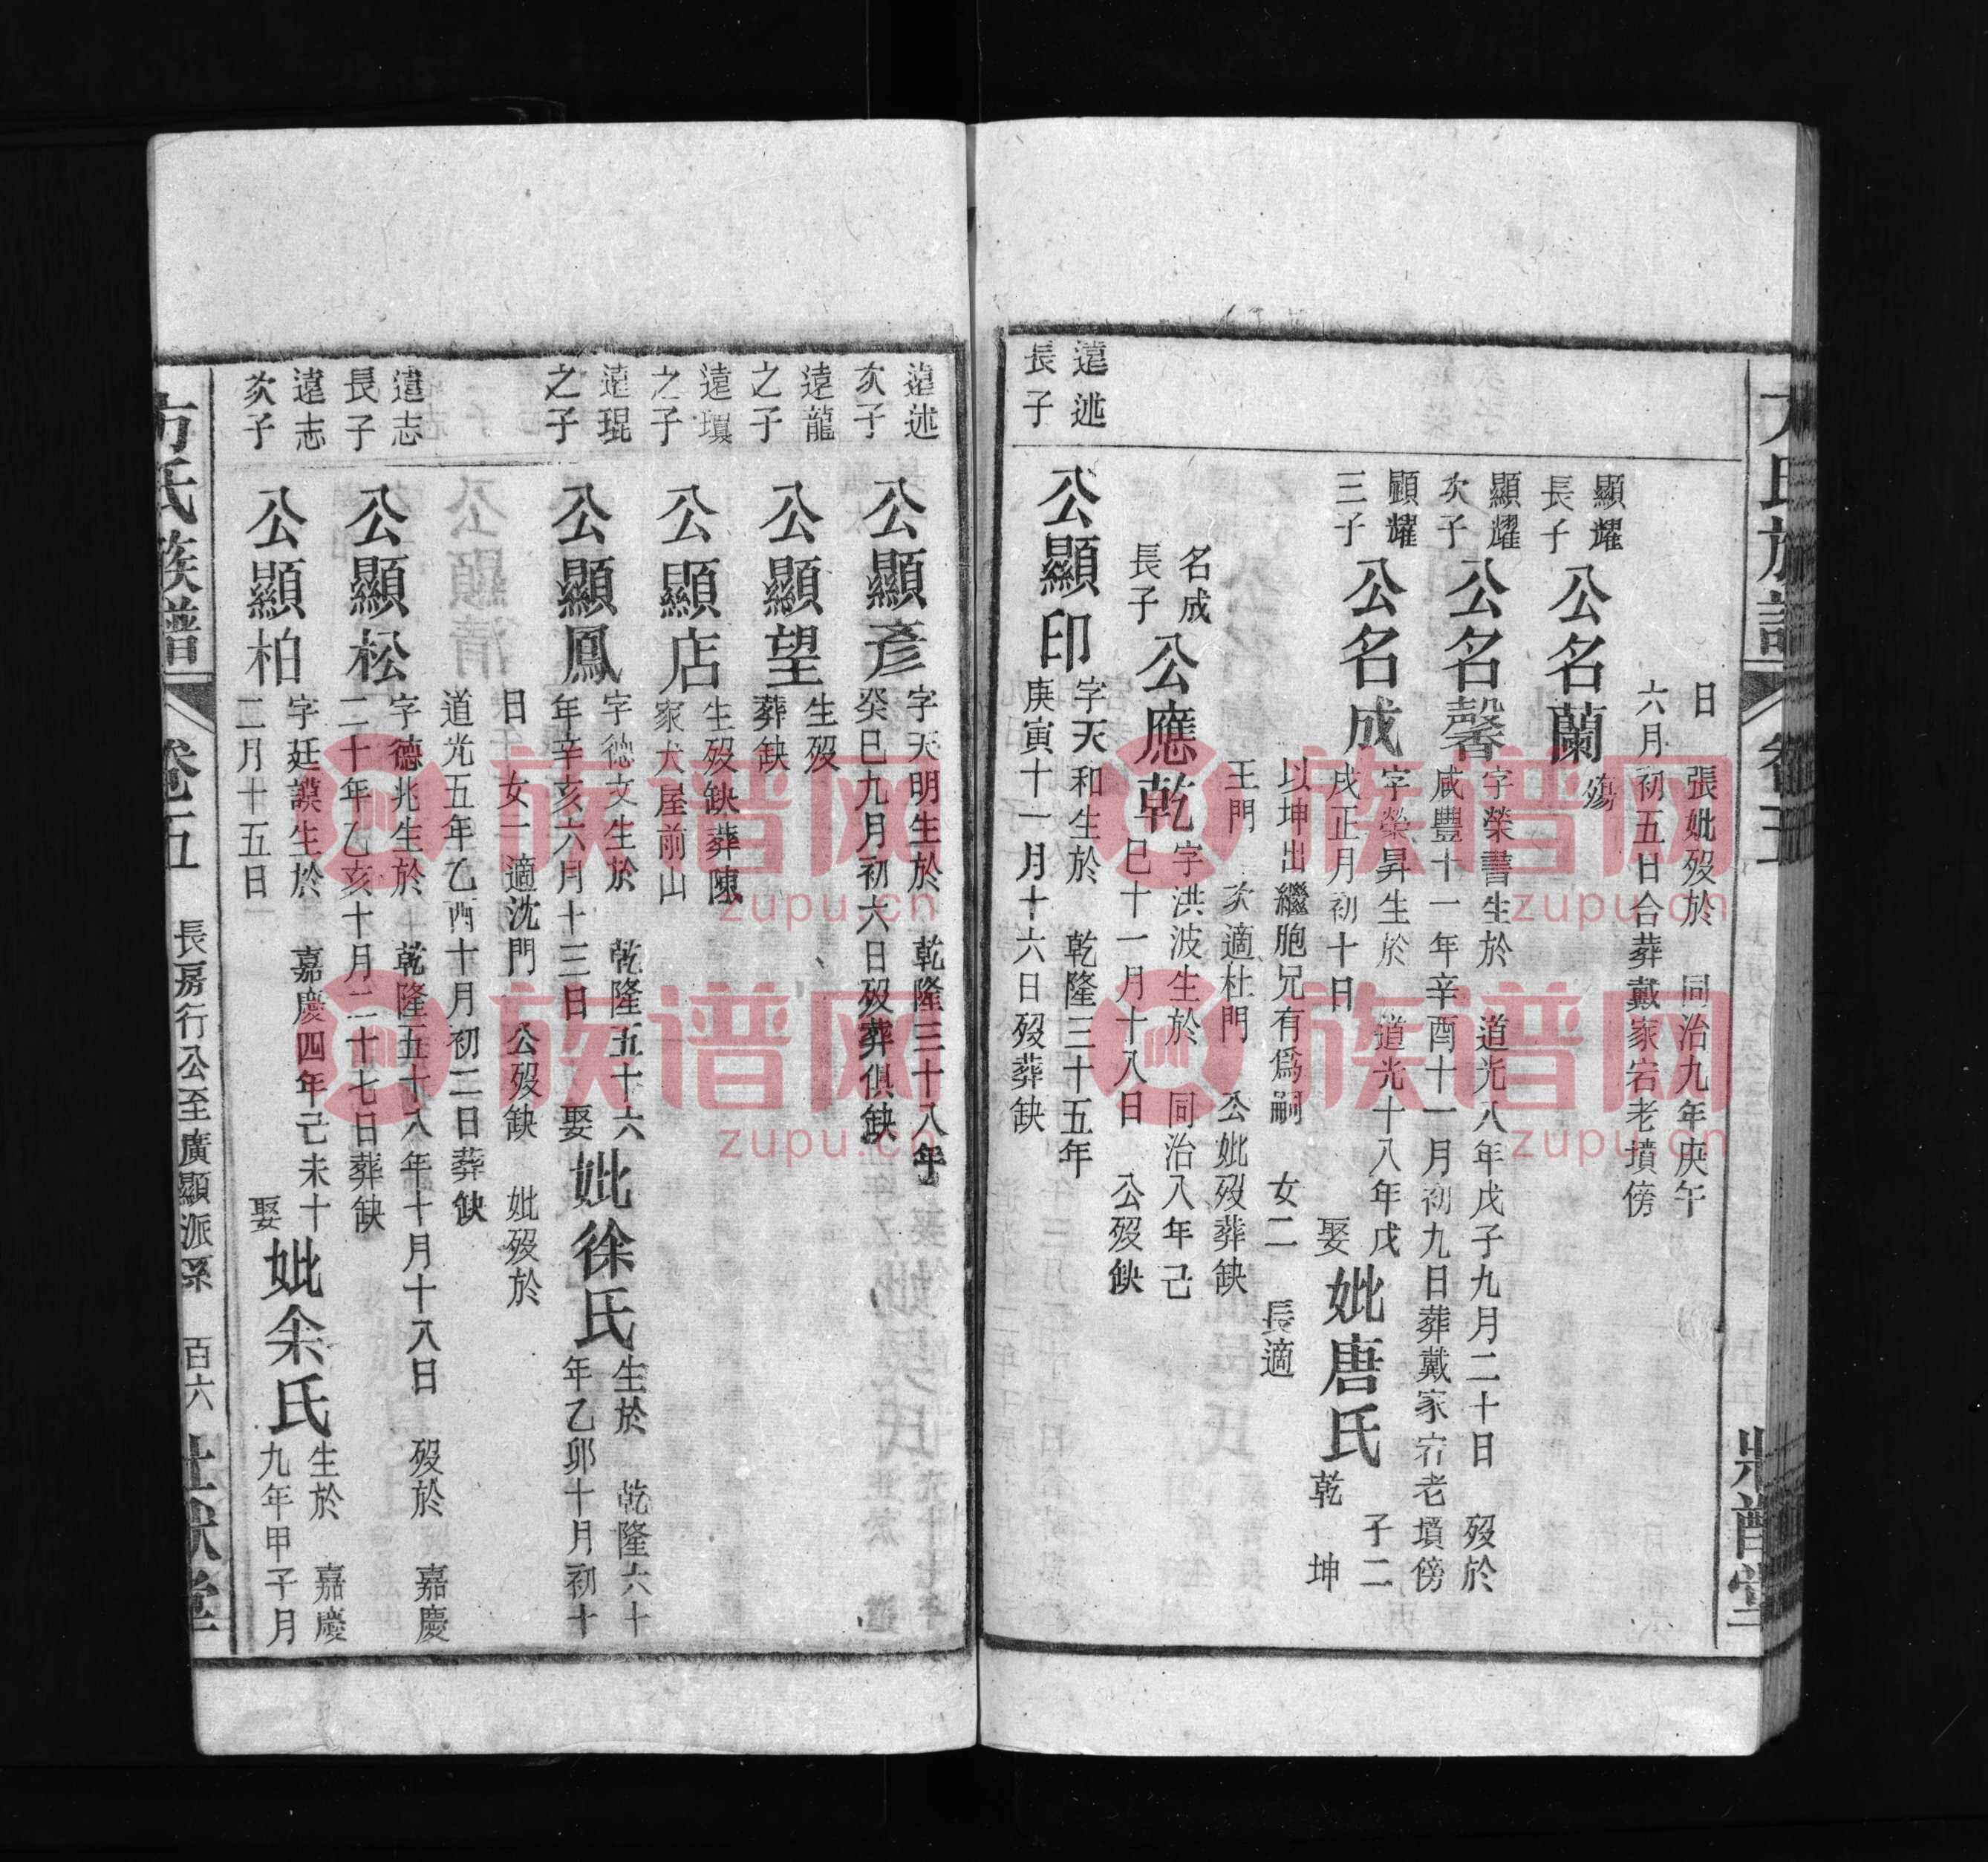 日　張妣歿於　同治九年庚午
六月初五日合葬戴家宕老墳傍
顯耀
長子
公名蘭
殤
顯耀
次子
公名馨
字榮書生於　道光八年戊子九月二十日　歿於
咸豐十一年辛酉十一月初九日葬戴家宕老墳傍
顯耀
三子
公名成
字榮昇生於　道光十八年戊
戌正月初十日
娶
妣唐氏
子二
乾　坤
以坤出繼胞兄有爲嗣　女二　長適
王門　次適杜門　公妣歿葬缺
名成
長子
公應乾
字洪波生於　同治八年己
巳十一月十八日　公歿缺
遠述
長子
公顯印
字天和生於　乾隆三十五年
庚寅十一月十六日歿葬缺
遠述
次子
公顯彥
字天明生於　乾隆三十八年
癸巳九月初六日歿葬俱缺
遠龍
之子
公顯望
生歿
葬缺
遠瓆
之子
公顯店
生歿缺葬陳
家犬屋前山
遠琨
之子
公顯鳳
字德文生於　乾隆五十六
年辛亥六月十三日
娶
妣徐氏
生於　乾隆六十
年乙卯十月初十
日　女一適沈門　公歿缺　妣歿於
道光五年乙酉十月初二日葬缺
遠志
長子
公顯松
字德兆生於　乾隆五十八年十月十八日　歿於　嘉慶
二十年乙亥十月二十七日葬缺
遠志
次子
公顯柏
字廷謨生於　嘉慶四年己未十
二月十五日
娶
妣余氏
生於　嘉慶
九年甲子月
方氏族譜
卷五
長房行公至廣顯派系
百六
壯猷堂
族谱网
zupu.cn
族谱网
zupu.cn
族谱网
zupu.cn
族谱网
zupu.cn